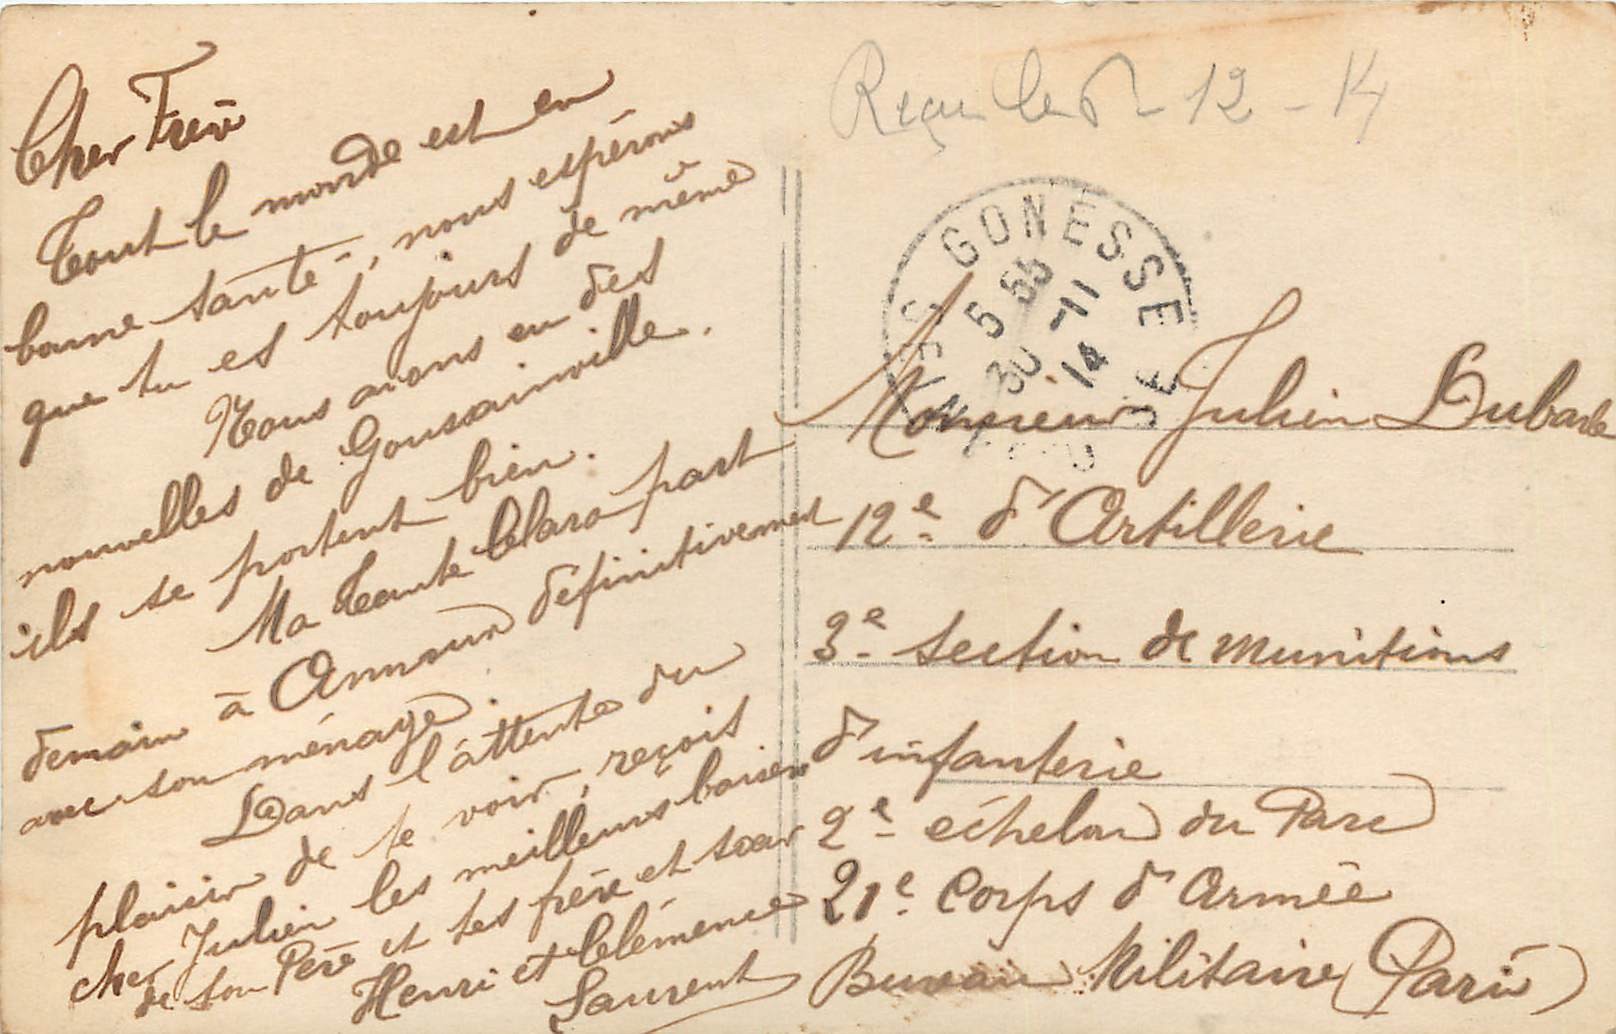 Cher Frère
Tout le monde est en
bonne santé, nous espérons
que tu es toujours de même
Nous avons eu des
nouvelles de Goussainville.
ils se portent bien.
Ma Tante Clara part
demain à définitivement
avec son ménage.
Dans l'attente du
plaisir de te voir, reçois
cher Julien les meilleurs baisers
de ton Père et tes frère et sœur
Henri et Clémence
Laurent
Reçu le 6-12-14
GONESSE
5 55
30-11
14
Monsieur Julien
12e d'Artillerie
3e section de munitions
d'infanterie
2e échelon du Parc
21e Corps d'Armée
Bureau Militaire (Paris)